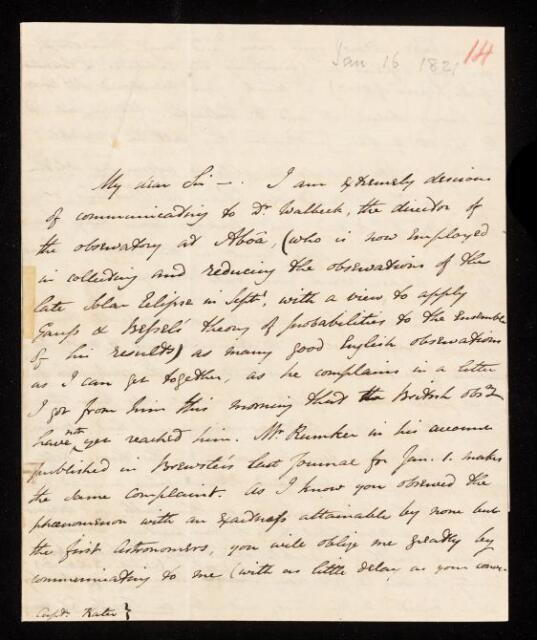 Jan 16 1821
14
My dear Sir —. I am extremely desirous
of communicating to Dr. Walbeck, the director of
the observatory at Aböa, (who is now employed
in collecting and reducing the observations of the
late Solar Eclipse in Septr, with a view to apply
Gauss & Bessel's theory of probabilities to the Ensemble
of his results) as many good English observations
as I can get together, as he complains in a letter
I got from him this morning that the British obsns
have not yet reached him. Mr. Rumker in his account
published in Brewster's last Journal for Jan. 1. makes
the same complaint. As I know you observed the
phænomenon with an exactness attainable by none but
the first Astronomers, you will oblige me greatly by
communicating to me (with as little delay as your conve-
Captn. Kater}